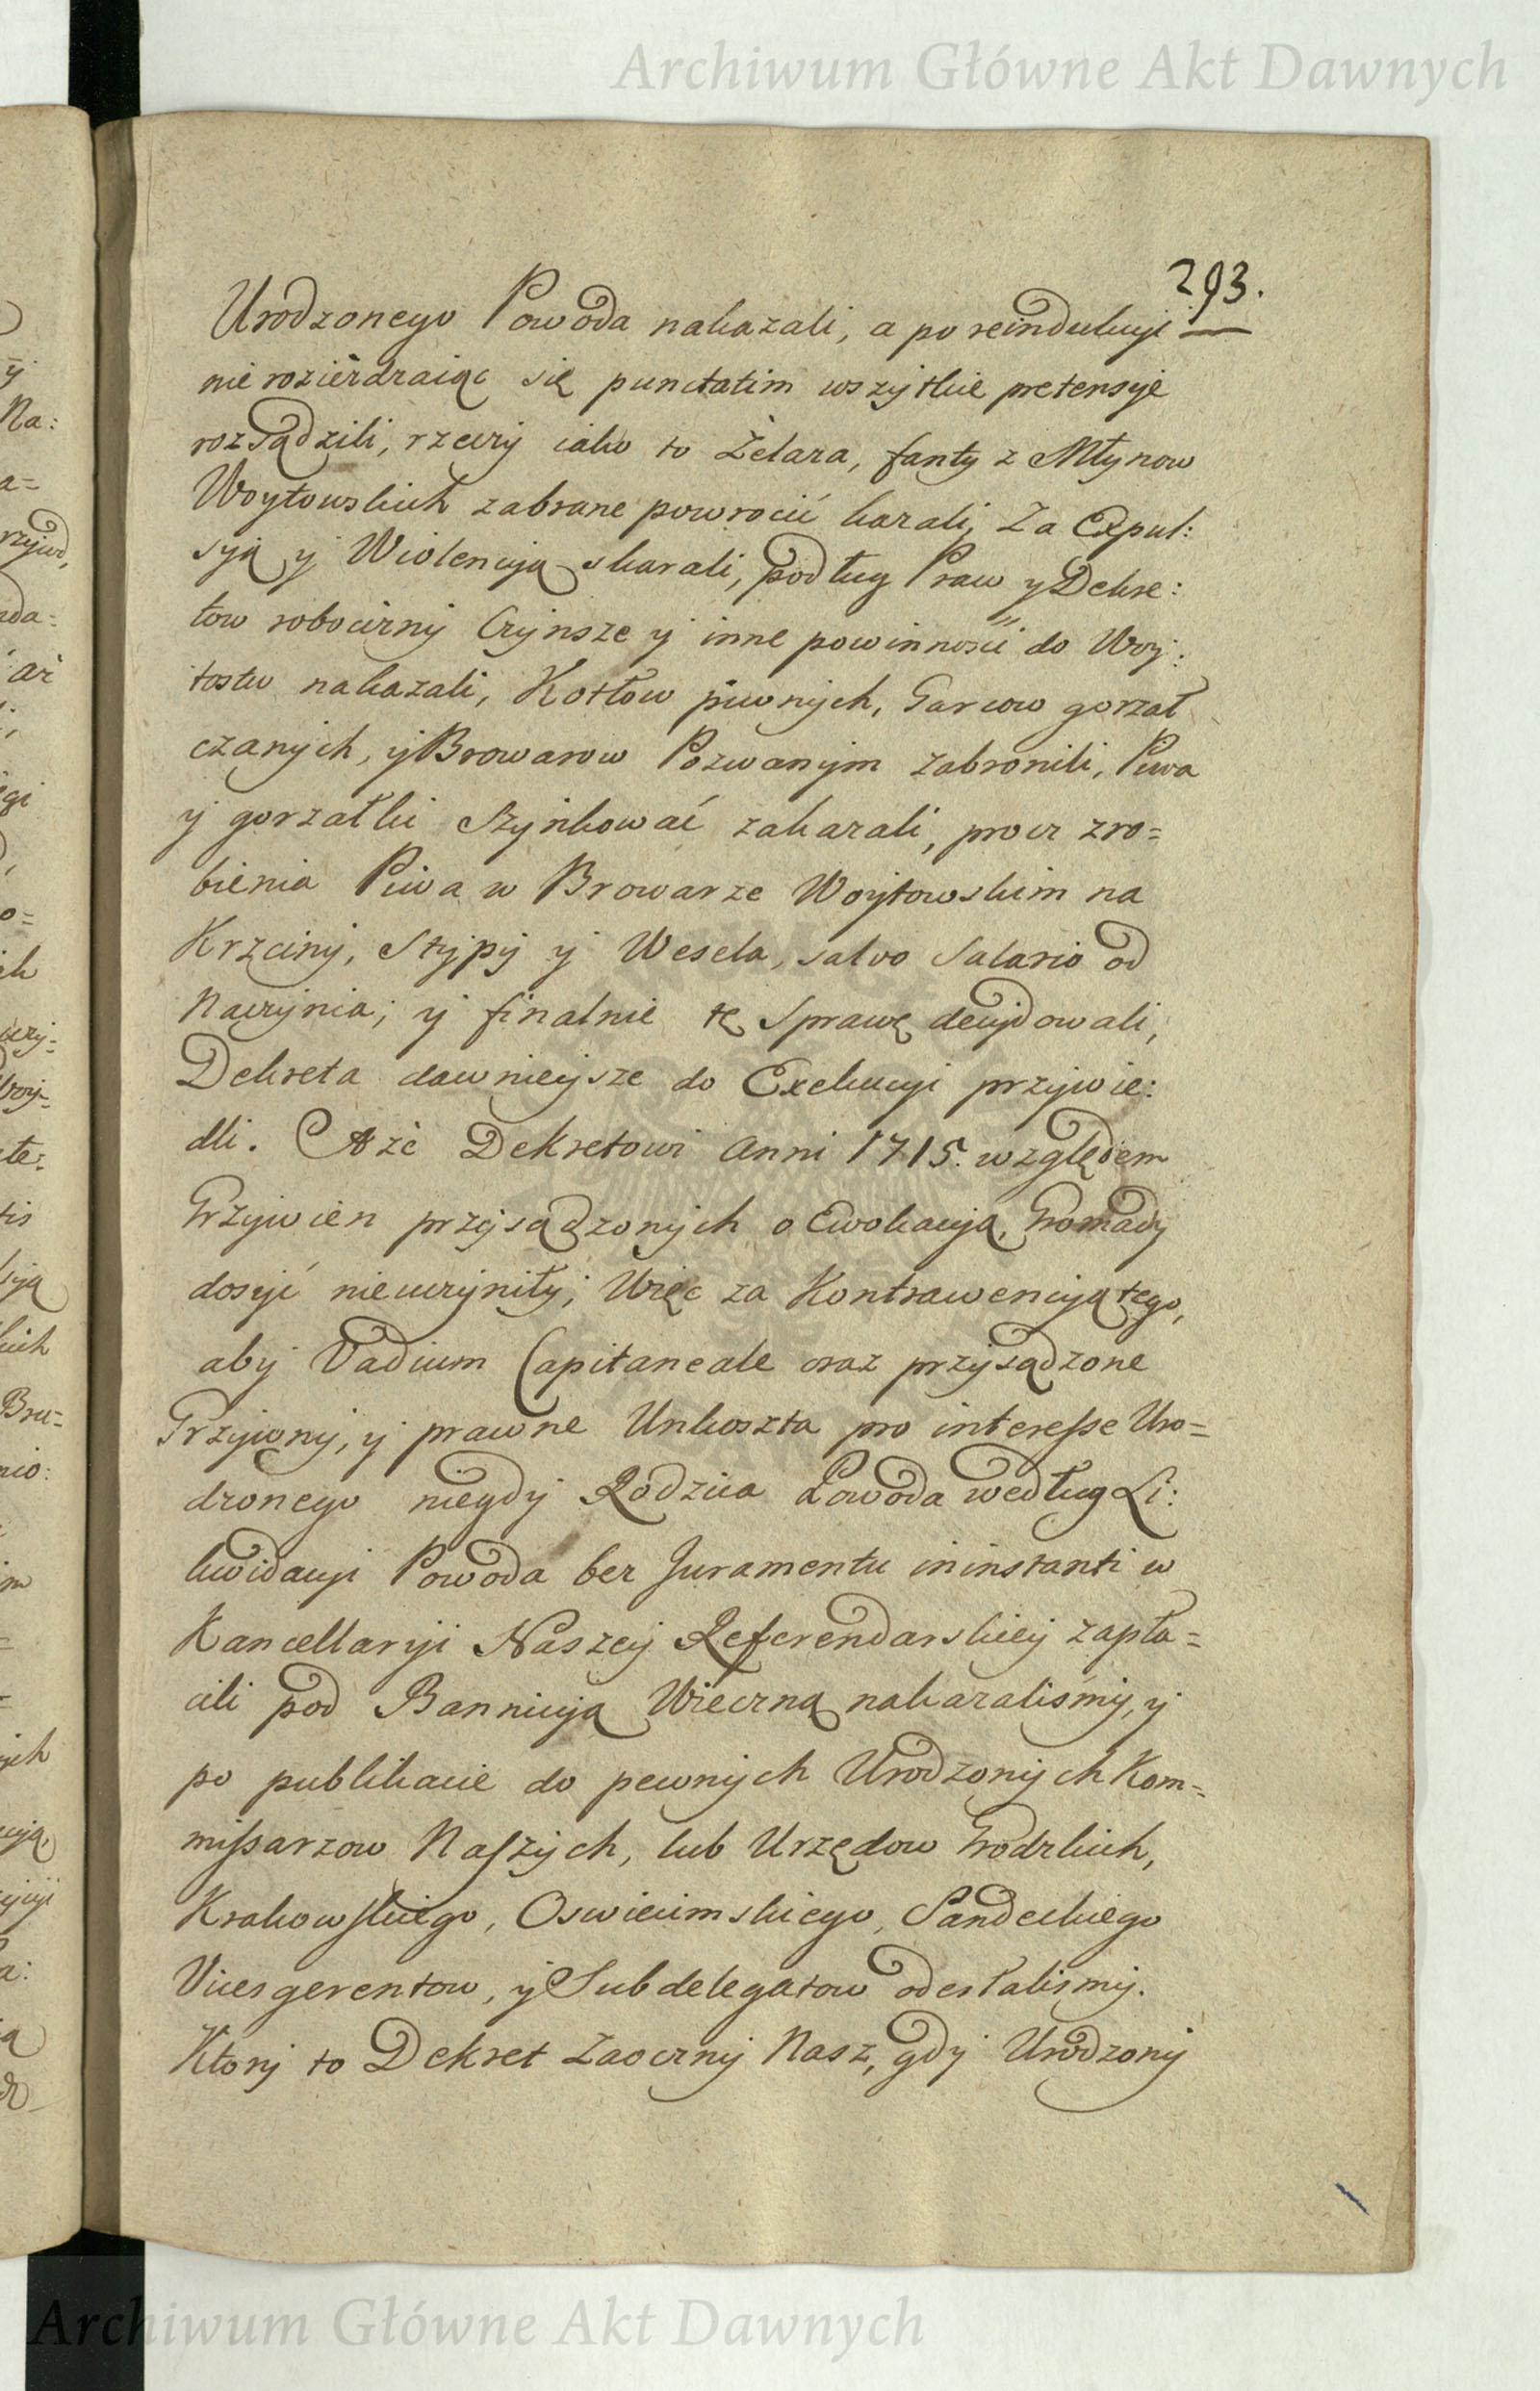 Archiwum Główne Akt Dawnych
293.
Urodzonego Powoda nakazali, a po reindukcyi
nie rozierdzaiąc się punctatim wszystkie pretensye
rozsądzili, rzeczy iako to Żelaza, fanty z Młynow
Woytowskich zabrane powrocić kazali, Za Expul:
syą y Wiolencyą skarali, podług Praw y Dekre:
tow robocizny Czynsze y inne powinności do Woy:
tostw nakazali, Kotłow piwnych, Garcow gorzał
czanych, y Browarow Pozwanym zabronili, Piwa
y gorzałki Szynkować zakazali, procz zro=
bienia Piwa w Browarze Woytowskim na
Krzciny, Stypy y Wesela, salvo Salario od
Naczynia; y finalnie tę Sprawę decydowali,
Dekreta dawnieysze do Exekucyi przywie:
dli. A że Dekretowi Anni 1715. względem
Grzywien przysądzonych o Ewokacyą, Gromady
dosyć nieuczyniły; Więc za Kontrawencyą tego,
aby Vadium Capitaneale oraz przysądzone
Grzywny, y prawne Unkoszta pro interesse Uro=
dzonego niegdy Rodzica Powoda według Li:
kwidacyi Powoda bez Juramentu in instanti w
Kancellaryi Naszey Referendarskiey zapła=
cili pod Bannicyą Wieczną nakazaliśmy, y
po publikacie do pewnych Urodzonych Kom=
missarzow Naszych, lub Urzędow Grodzkich,
Krakowskiego, Oswiecimskiego, Sandeckiego
Vicesgerentow, y Subdelegatow odesłalismy.
Ktory to Dekret Zaoczny Nasz, gdy Urodzony
Archiwum Główne Akt Dawnych